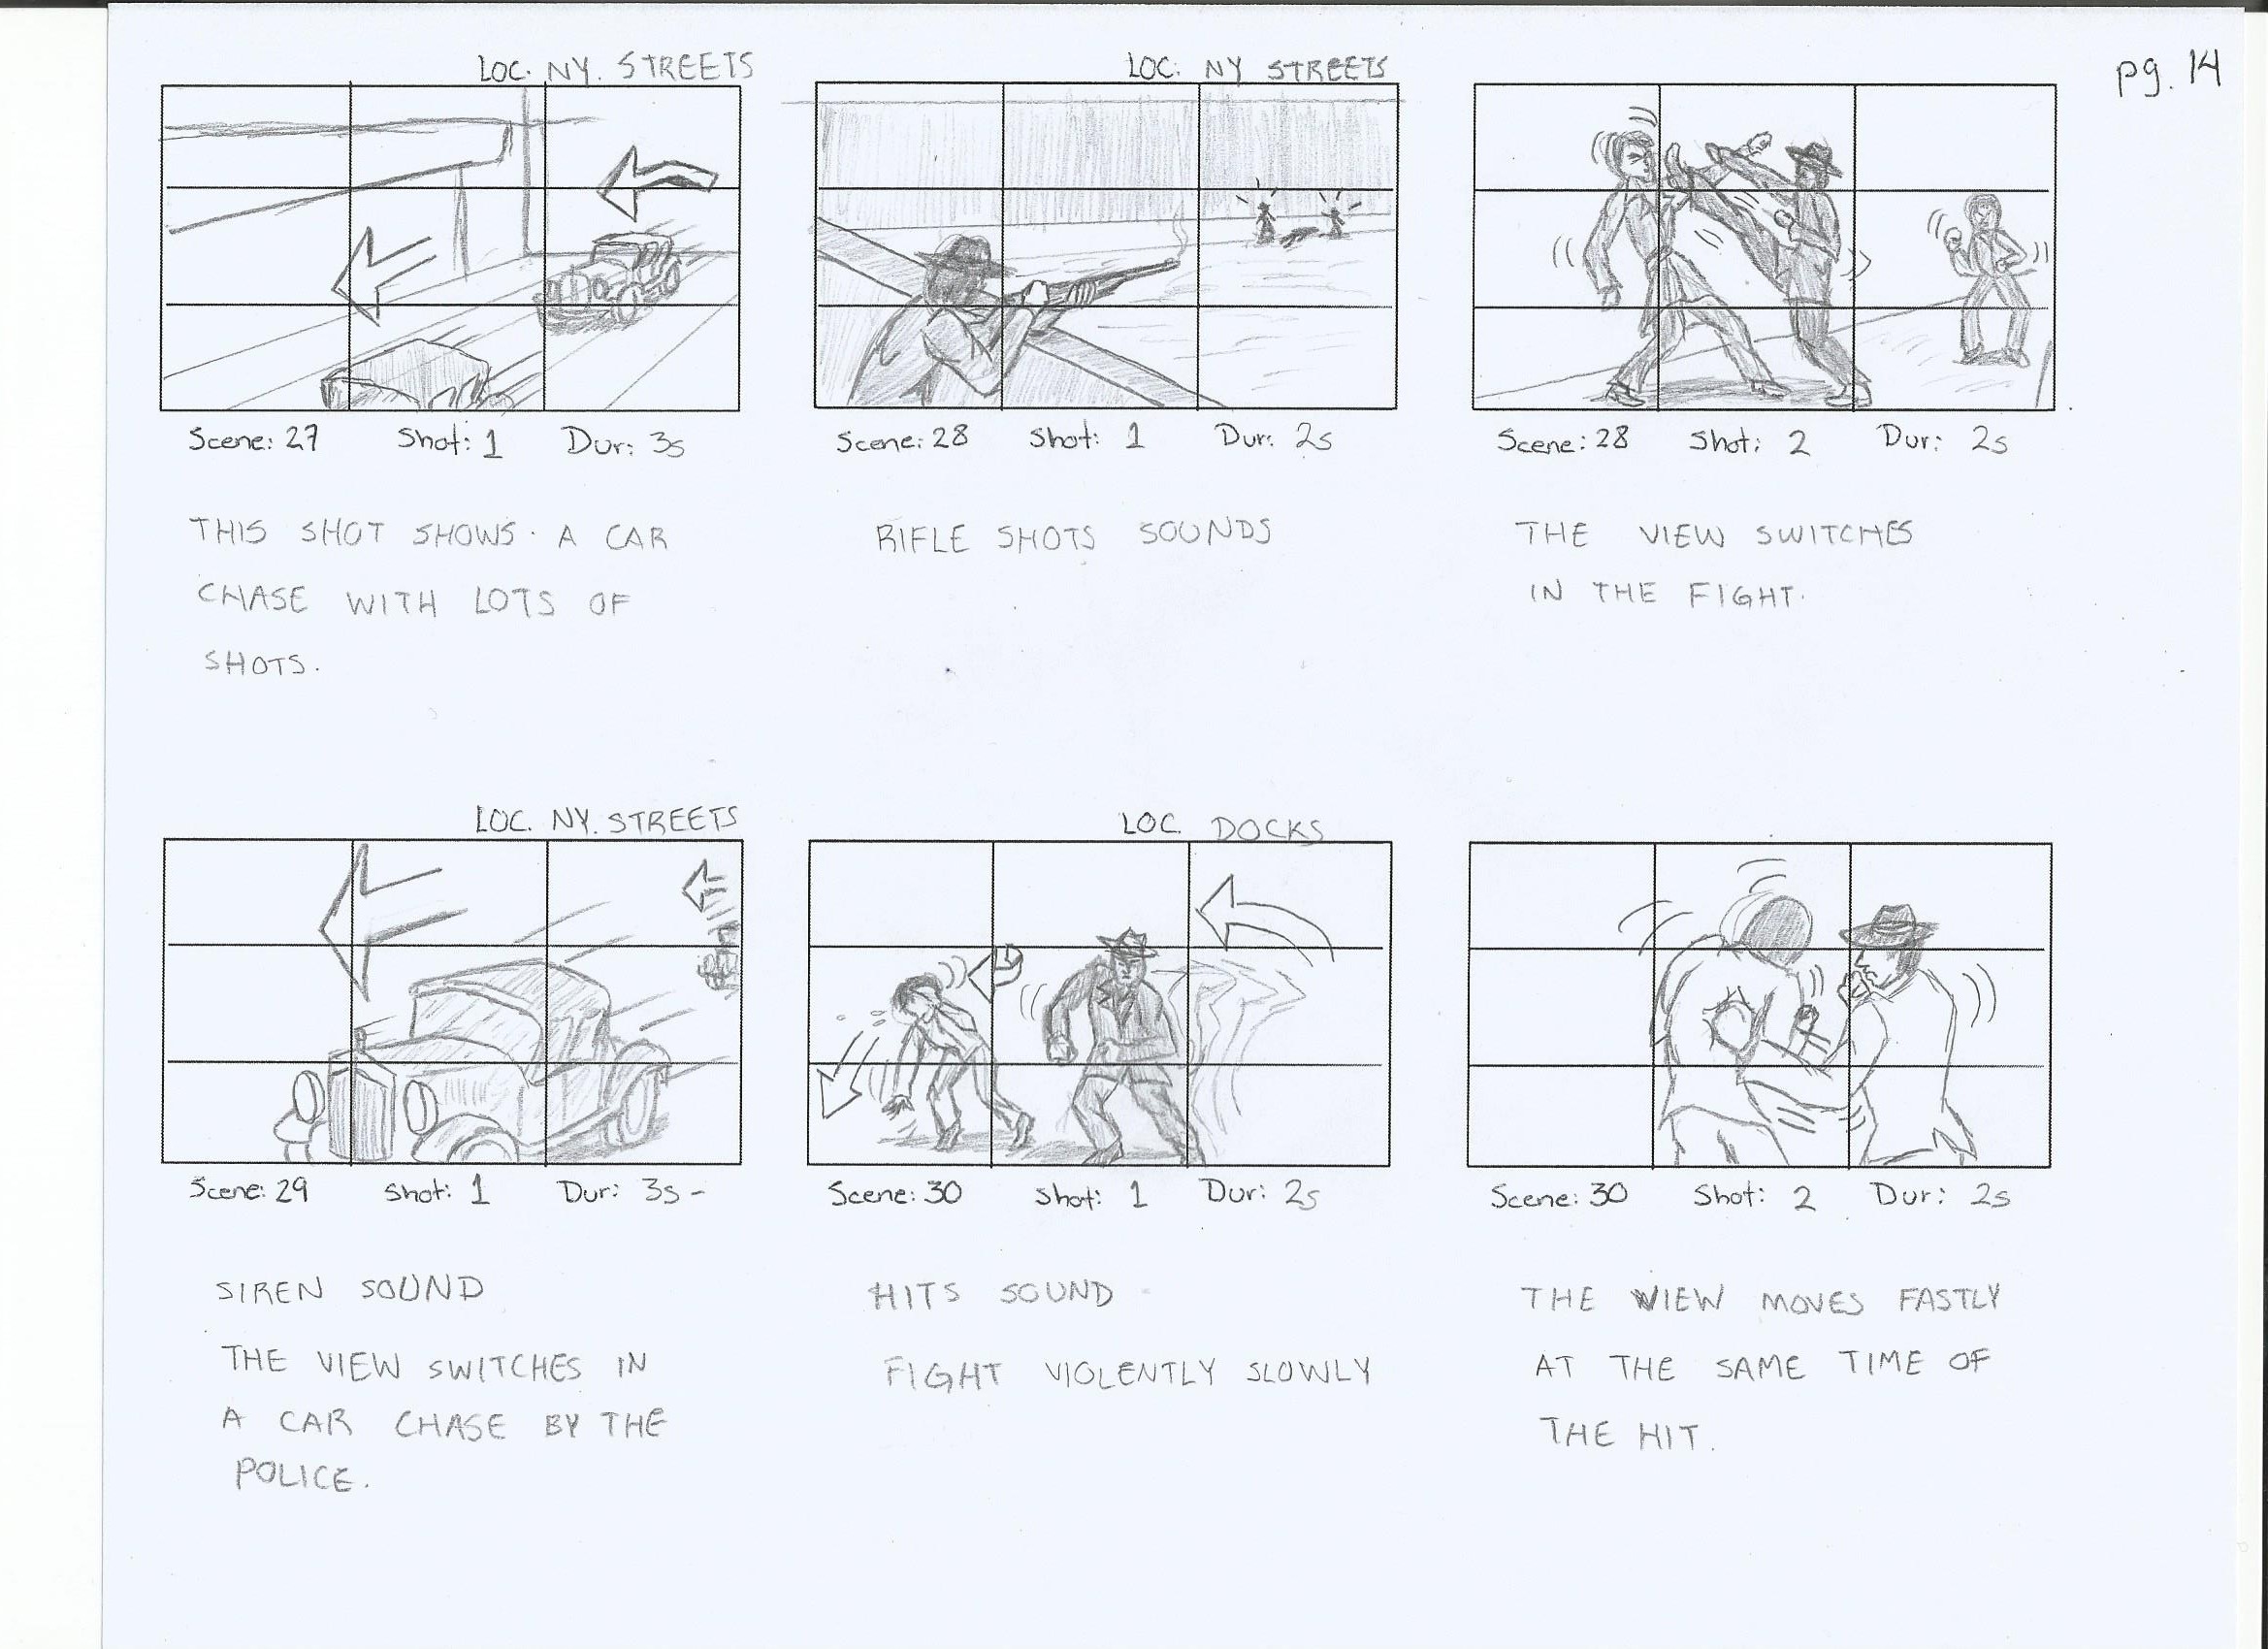 pg. 14
LOC. NY. STREETS
Scene: 27 Shot: 1 Dur: 3s
THIS SHOT SHOWS. A CAR
CHASE WITH LOTS OF
SHOTS.
LOC. NY STREETS
Scene: 28 Shot: 1 Dur: 2s
RIFLE SHOTS SOUNDS
Scene: 28 Shot: 2 Dur: 2s
THE VIEW SWITCHES
IN THE FIGHT.
LOC. NY. STREETS
Scene: 29 Shot: 1 Dur: 3s -
SIREN SOUND
THE VIEW SWITCHES IN
A CAR CHASE BY THE
POLICE.
LOC. DOCKS
Scene: 30 Shot: 1 Dur: 2s
HITS SOUND
FIGHT VIOLENTLY SLOWLY
Scene: 30 Shot: 2 Dur: 2s
THE VIEW MOVES FASTLY
AT THE SAME TIME OF
THE HIT.